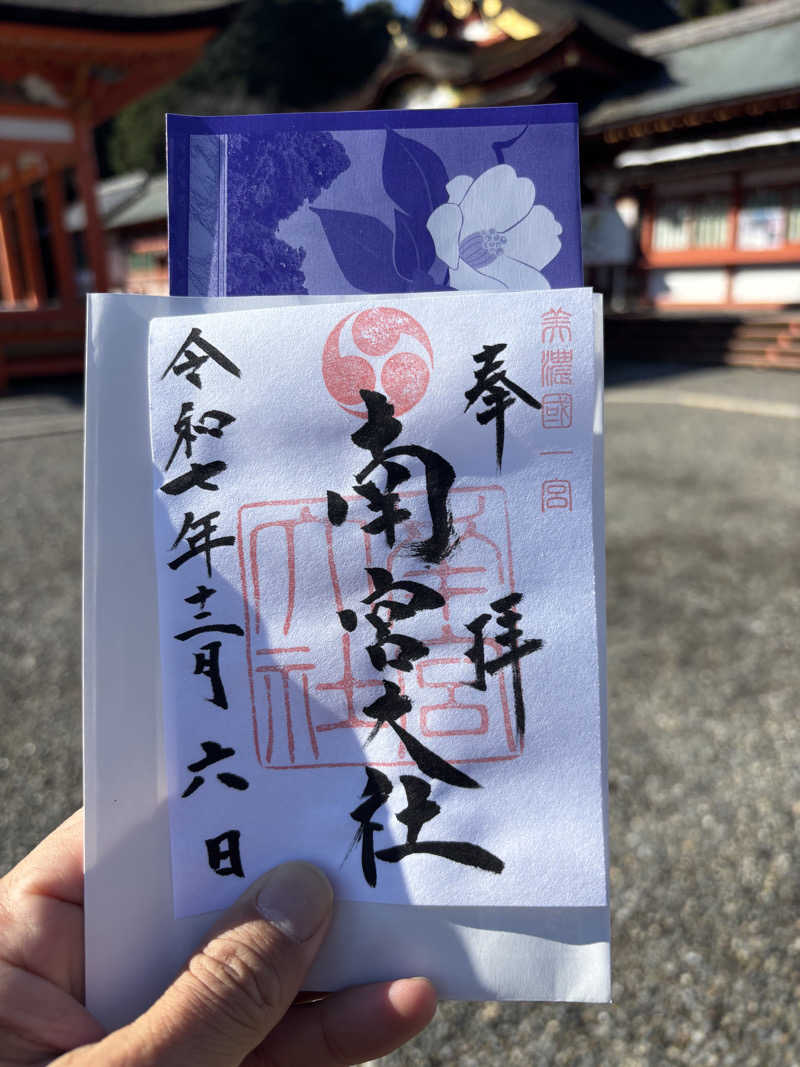 美濃國一宮
奉拝
南宮大社
南宮大社
令和七年十二月六日